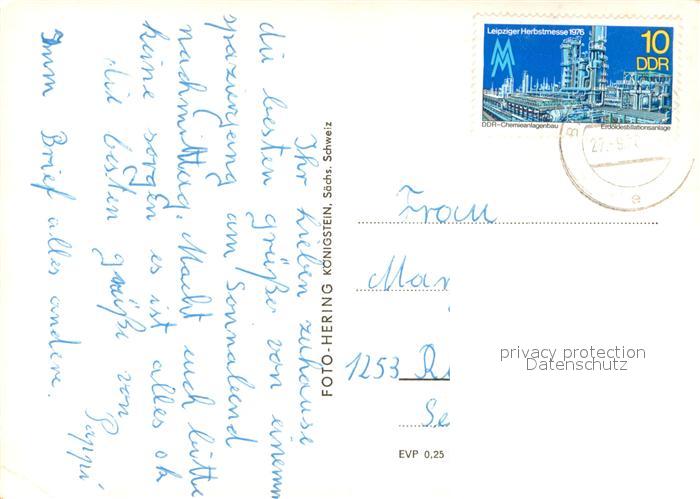 Ihr lieben zuhause
die besten grüße von einem
spaziergang am Sonnabend
nachmittag. Macht euch bitte
keine sorgen es ist alles ok
die besten grüße von
Pappi
Imm Brief alles andere.
FOTO-HERING KÖNIGSTEIN, Sächs. Schweiz
Leipziger Herbstmesse 1976
10
DDR
DDR-Chemieanlagenbau
Erdöldestillationsanlage
Frau
Mar
1253 R
Se
privacy protection
Datenschutz
EVP 0,25